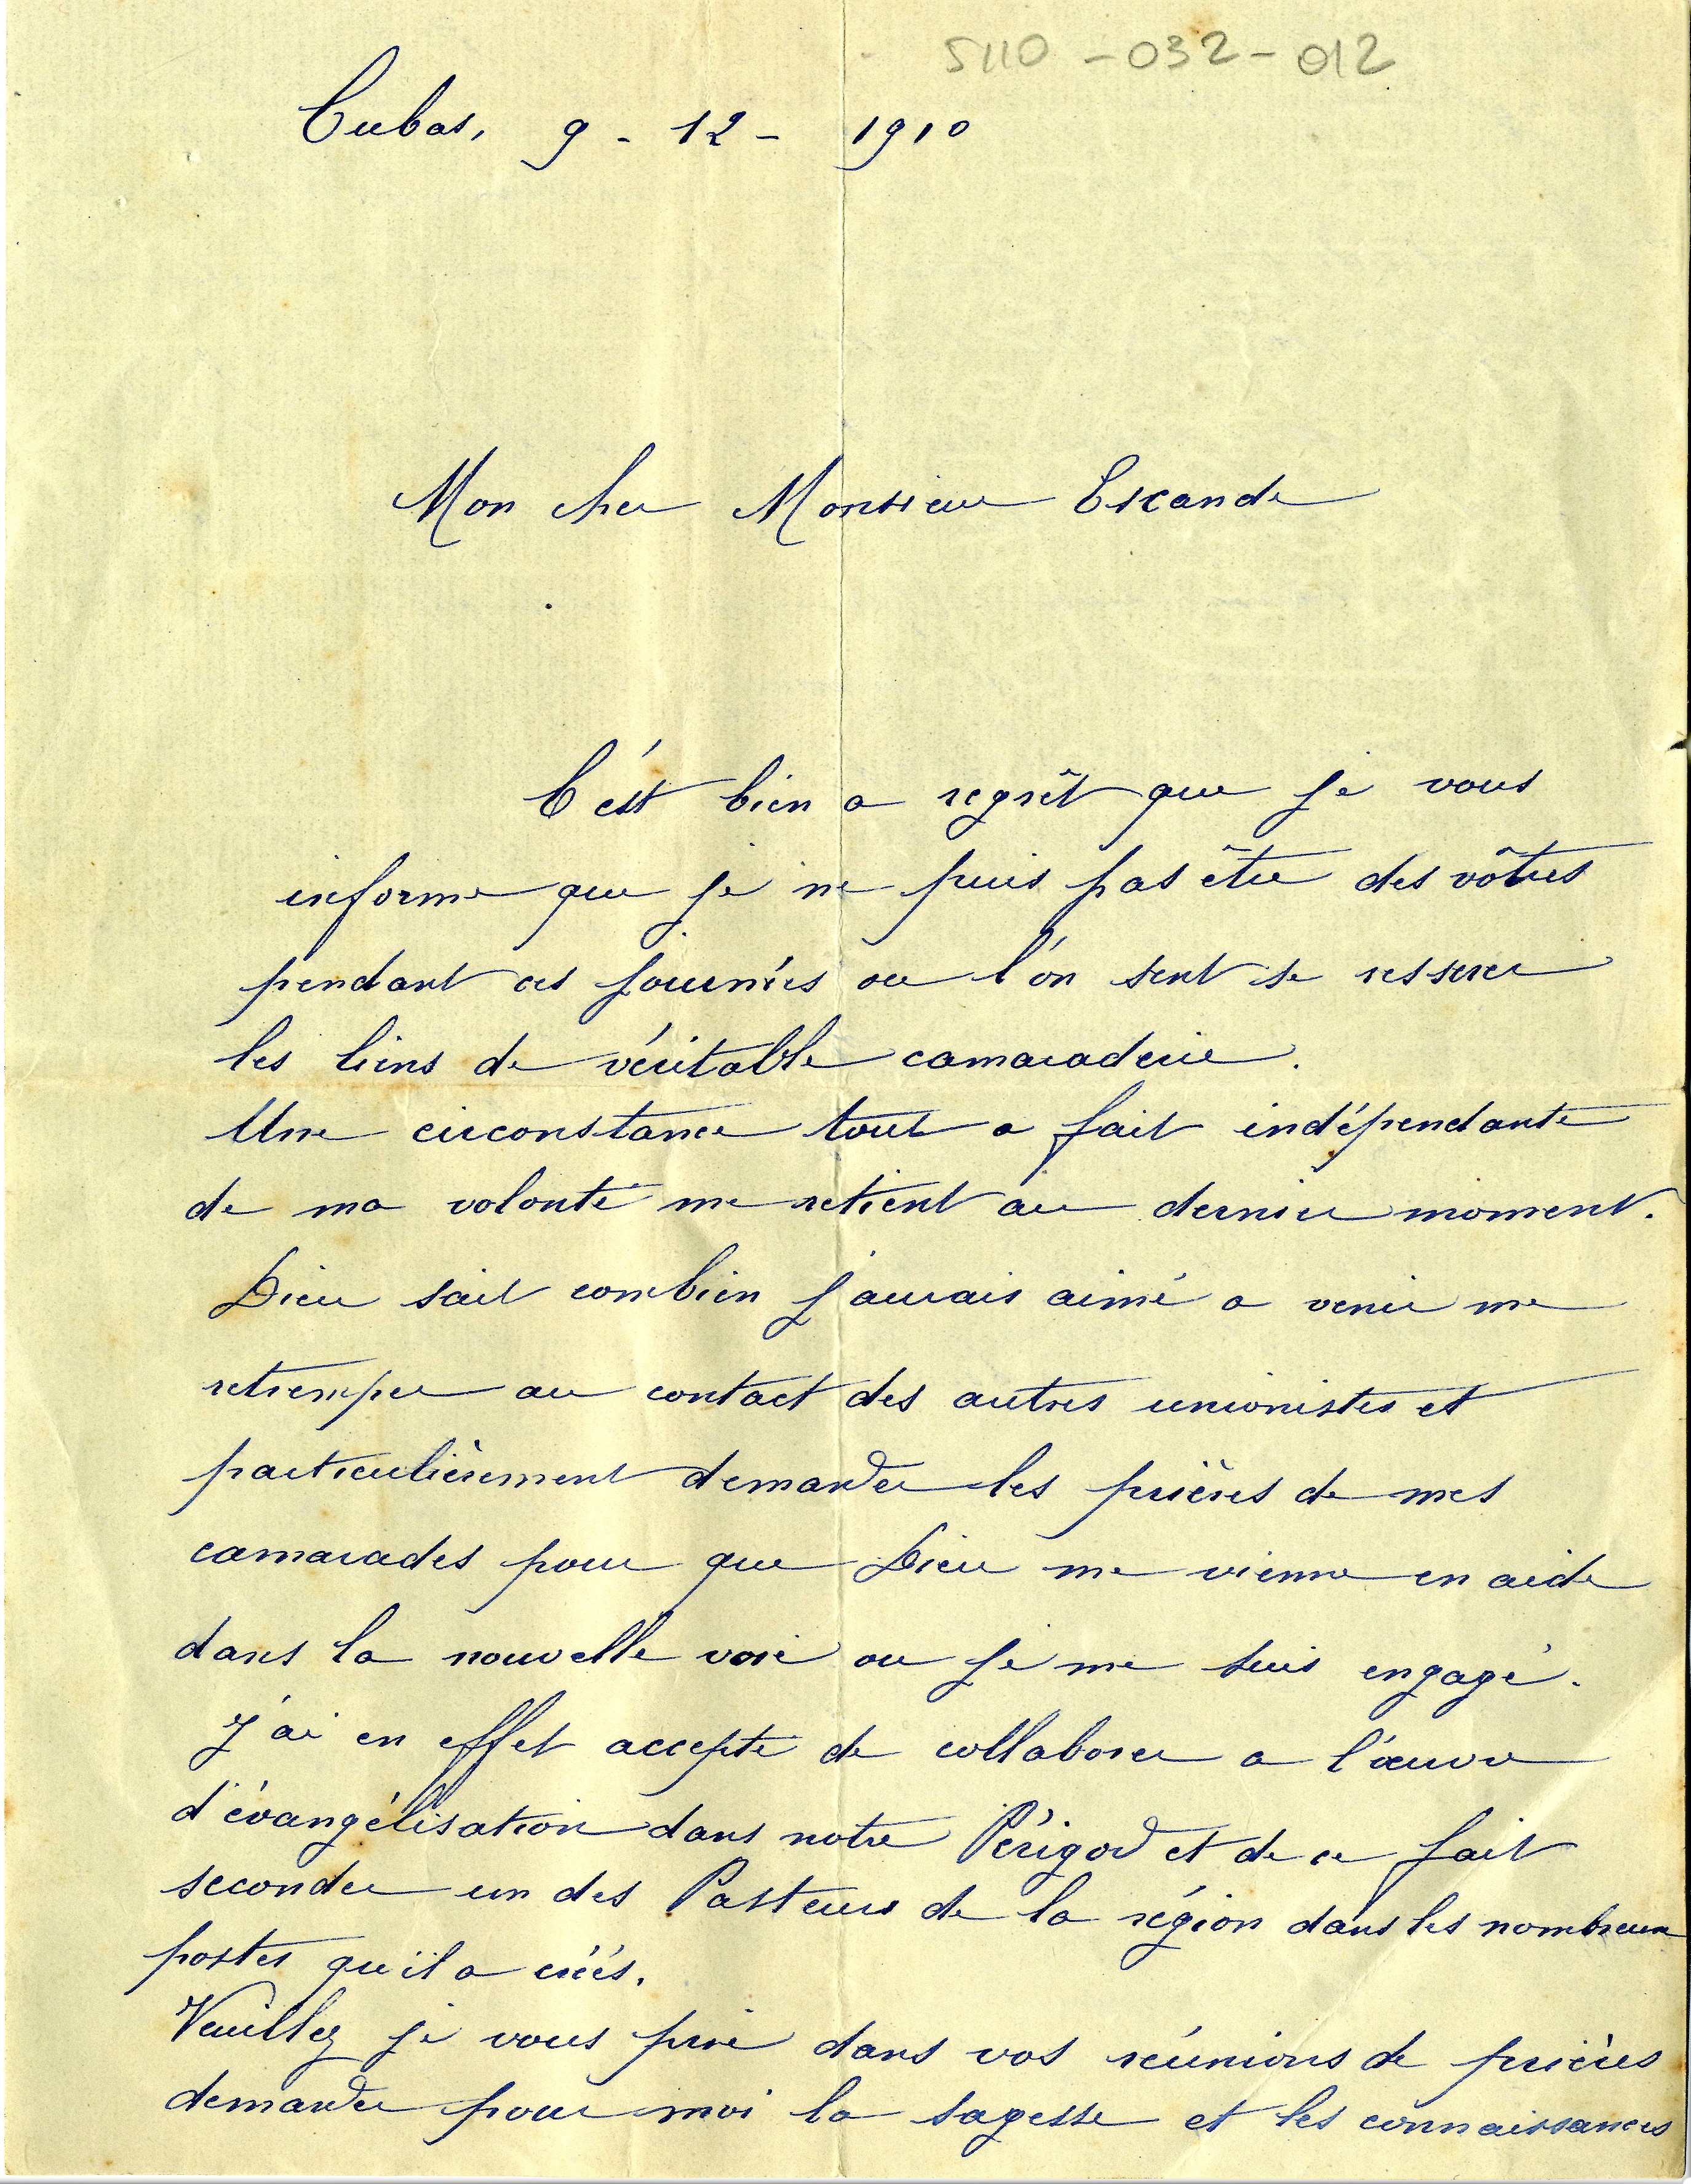 5110-032-012
Cubas, 9 - 12 - 1910
Mon cher Monsieur Escande
C'est bien a regrêt que je vous
informe que je ne puis pas être des vôtres
pendant ces journées ou l'on sent se resserer
les liens de véritable camaraderie.
Une circonstance tout a fait indépendante
de ma volonté me retient au dernier moment.
Dieu sait combien j'aurais aimé a venir me
retremper au contact des autres unionistes et
particulièrement demander les prières de mes
camarades pour que Dieu me vienne en aide
dans la nouvelle voie ou je me suis engagé.
J'ai en effet accepté de collaborer a l'œuvre
d'évangélisation dans notre Périgord et de ce fait
seconder un des Pasteurs de la région dans les nombreux
postes qu'il a créés.
Veuillez je vous prie dans vos réunions de prières
demander pour moi la sagesse et les connaissances